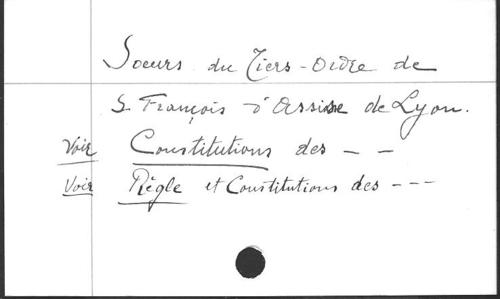 Soeurs du Tiers-Ordre de
S. François d'Assise de Lyon.
Voir Constitutions des - -
Voir Règle et Constitutions des - - -